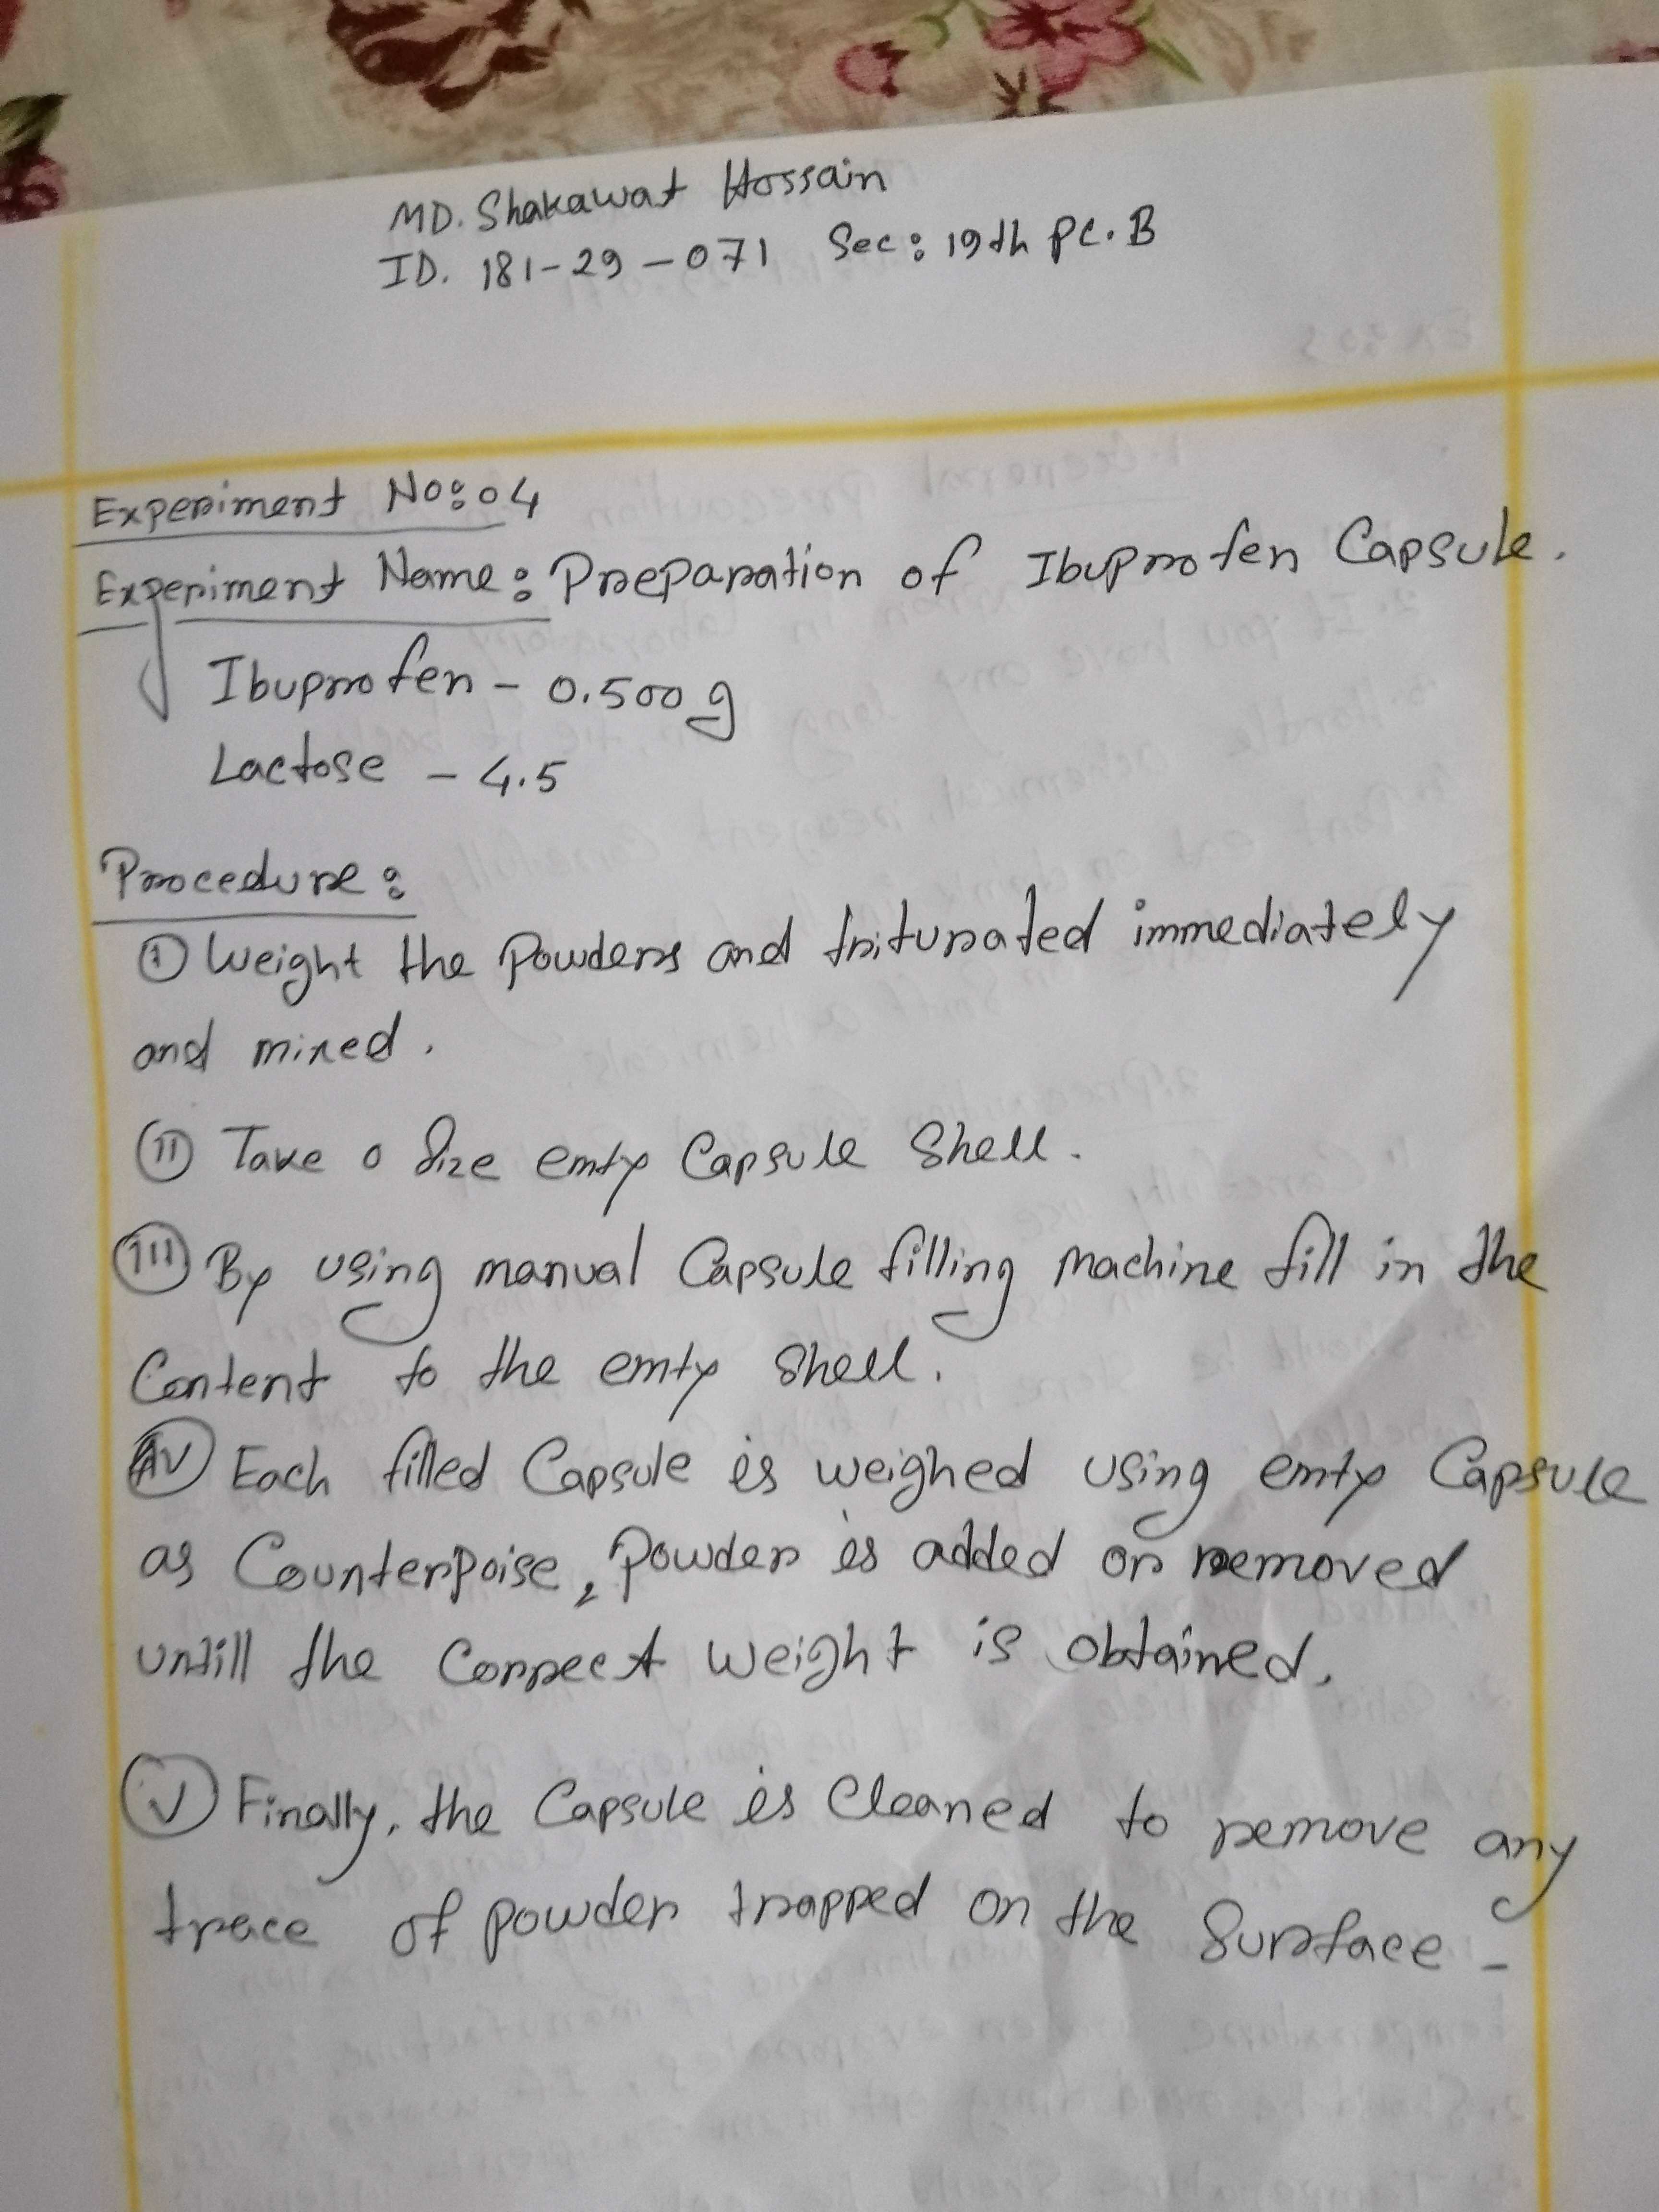 MD. Shakawat Hossain
ID. 181-29-071 Sec: 19th PC.B
Experiment No: 04
Experiment Name: Preparation of Ibuprofen Capsule.
Ibuprofen - 0.500g
Lactose - 4.5
Procedure:
(I) Weight the Powders and triturated immediately
and mixed.
(II) Take 0 Size emty Capsule Shell.
(III) By using manual Capsule filling machine fill in the
Content to the emty Shell.
(IV) Each filled Capsule is weighed using emty Capsule
as Counterpoise, Powder is added or removed
untill the Correct weight is obtained.
(V) Finally, the Capsule is Cleaned to remove any
trace of powder trapped on the Surface -